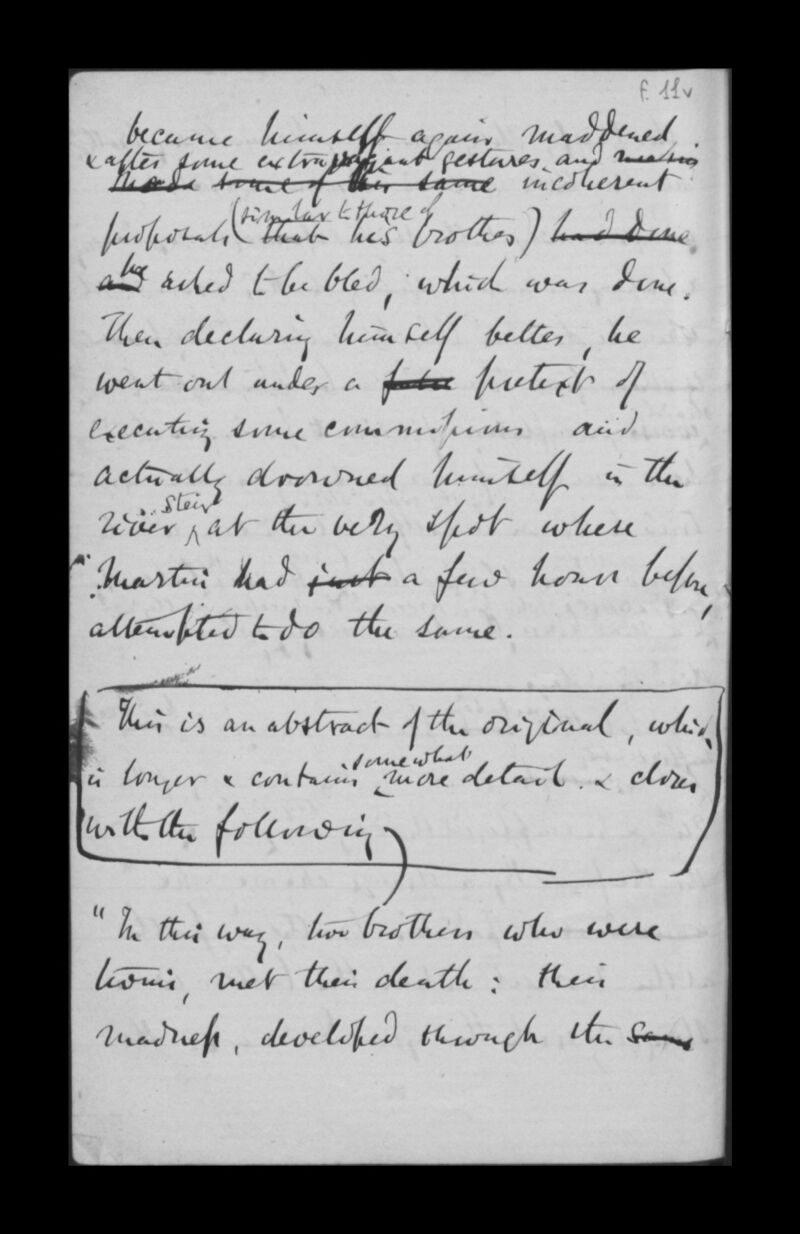 f. 11v
became himself again maddened
& after some extravagant gestures, and
made some of his same incoherent
(similar to those of
proposals that his brother) had done
and he asked to be bled, which was done.
Then declaring himself better, he
went out under a false pretext of
executing some commissions and
actually drowned himself in the
river Steir at the very spot where
Martin had just a few hours before,
attempted to do the same.
This is an abstract of the original, which
is longer & contains somewhat more detail. & closes
with the following
"In this way, two brothers who were
twins, met their death : their
madness, developed through the same